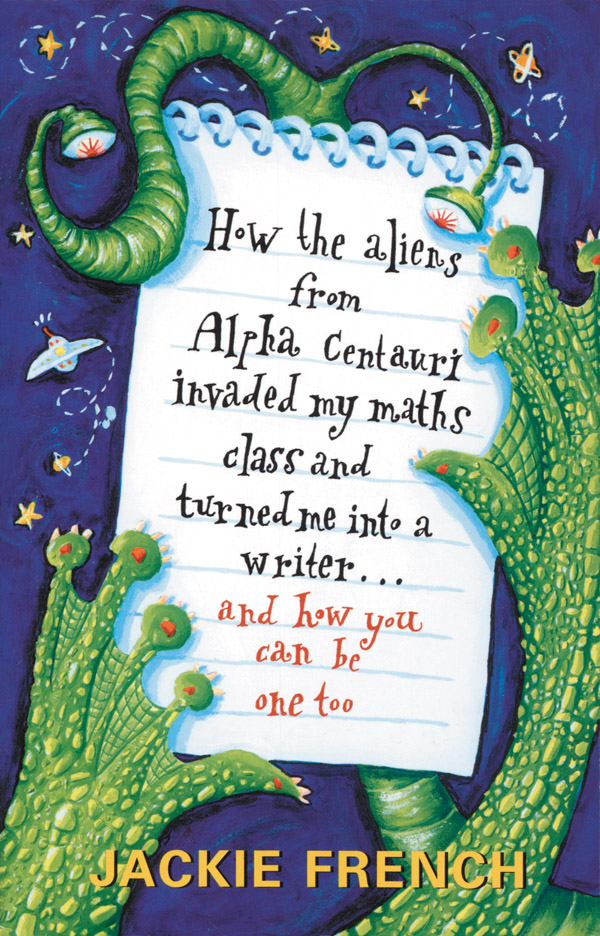 How the aliens
from
Alpha Centauri
invaded my maths
class and
turned me into a
writer...
and how you
can be
one too
JACKIE FRENCH